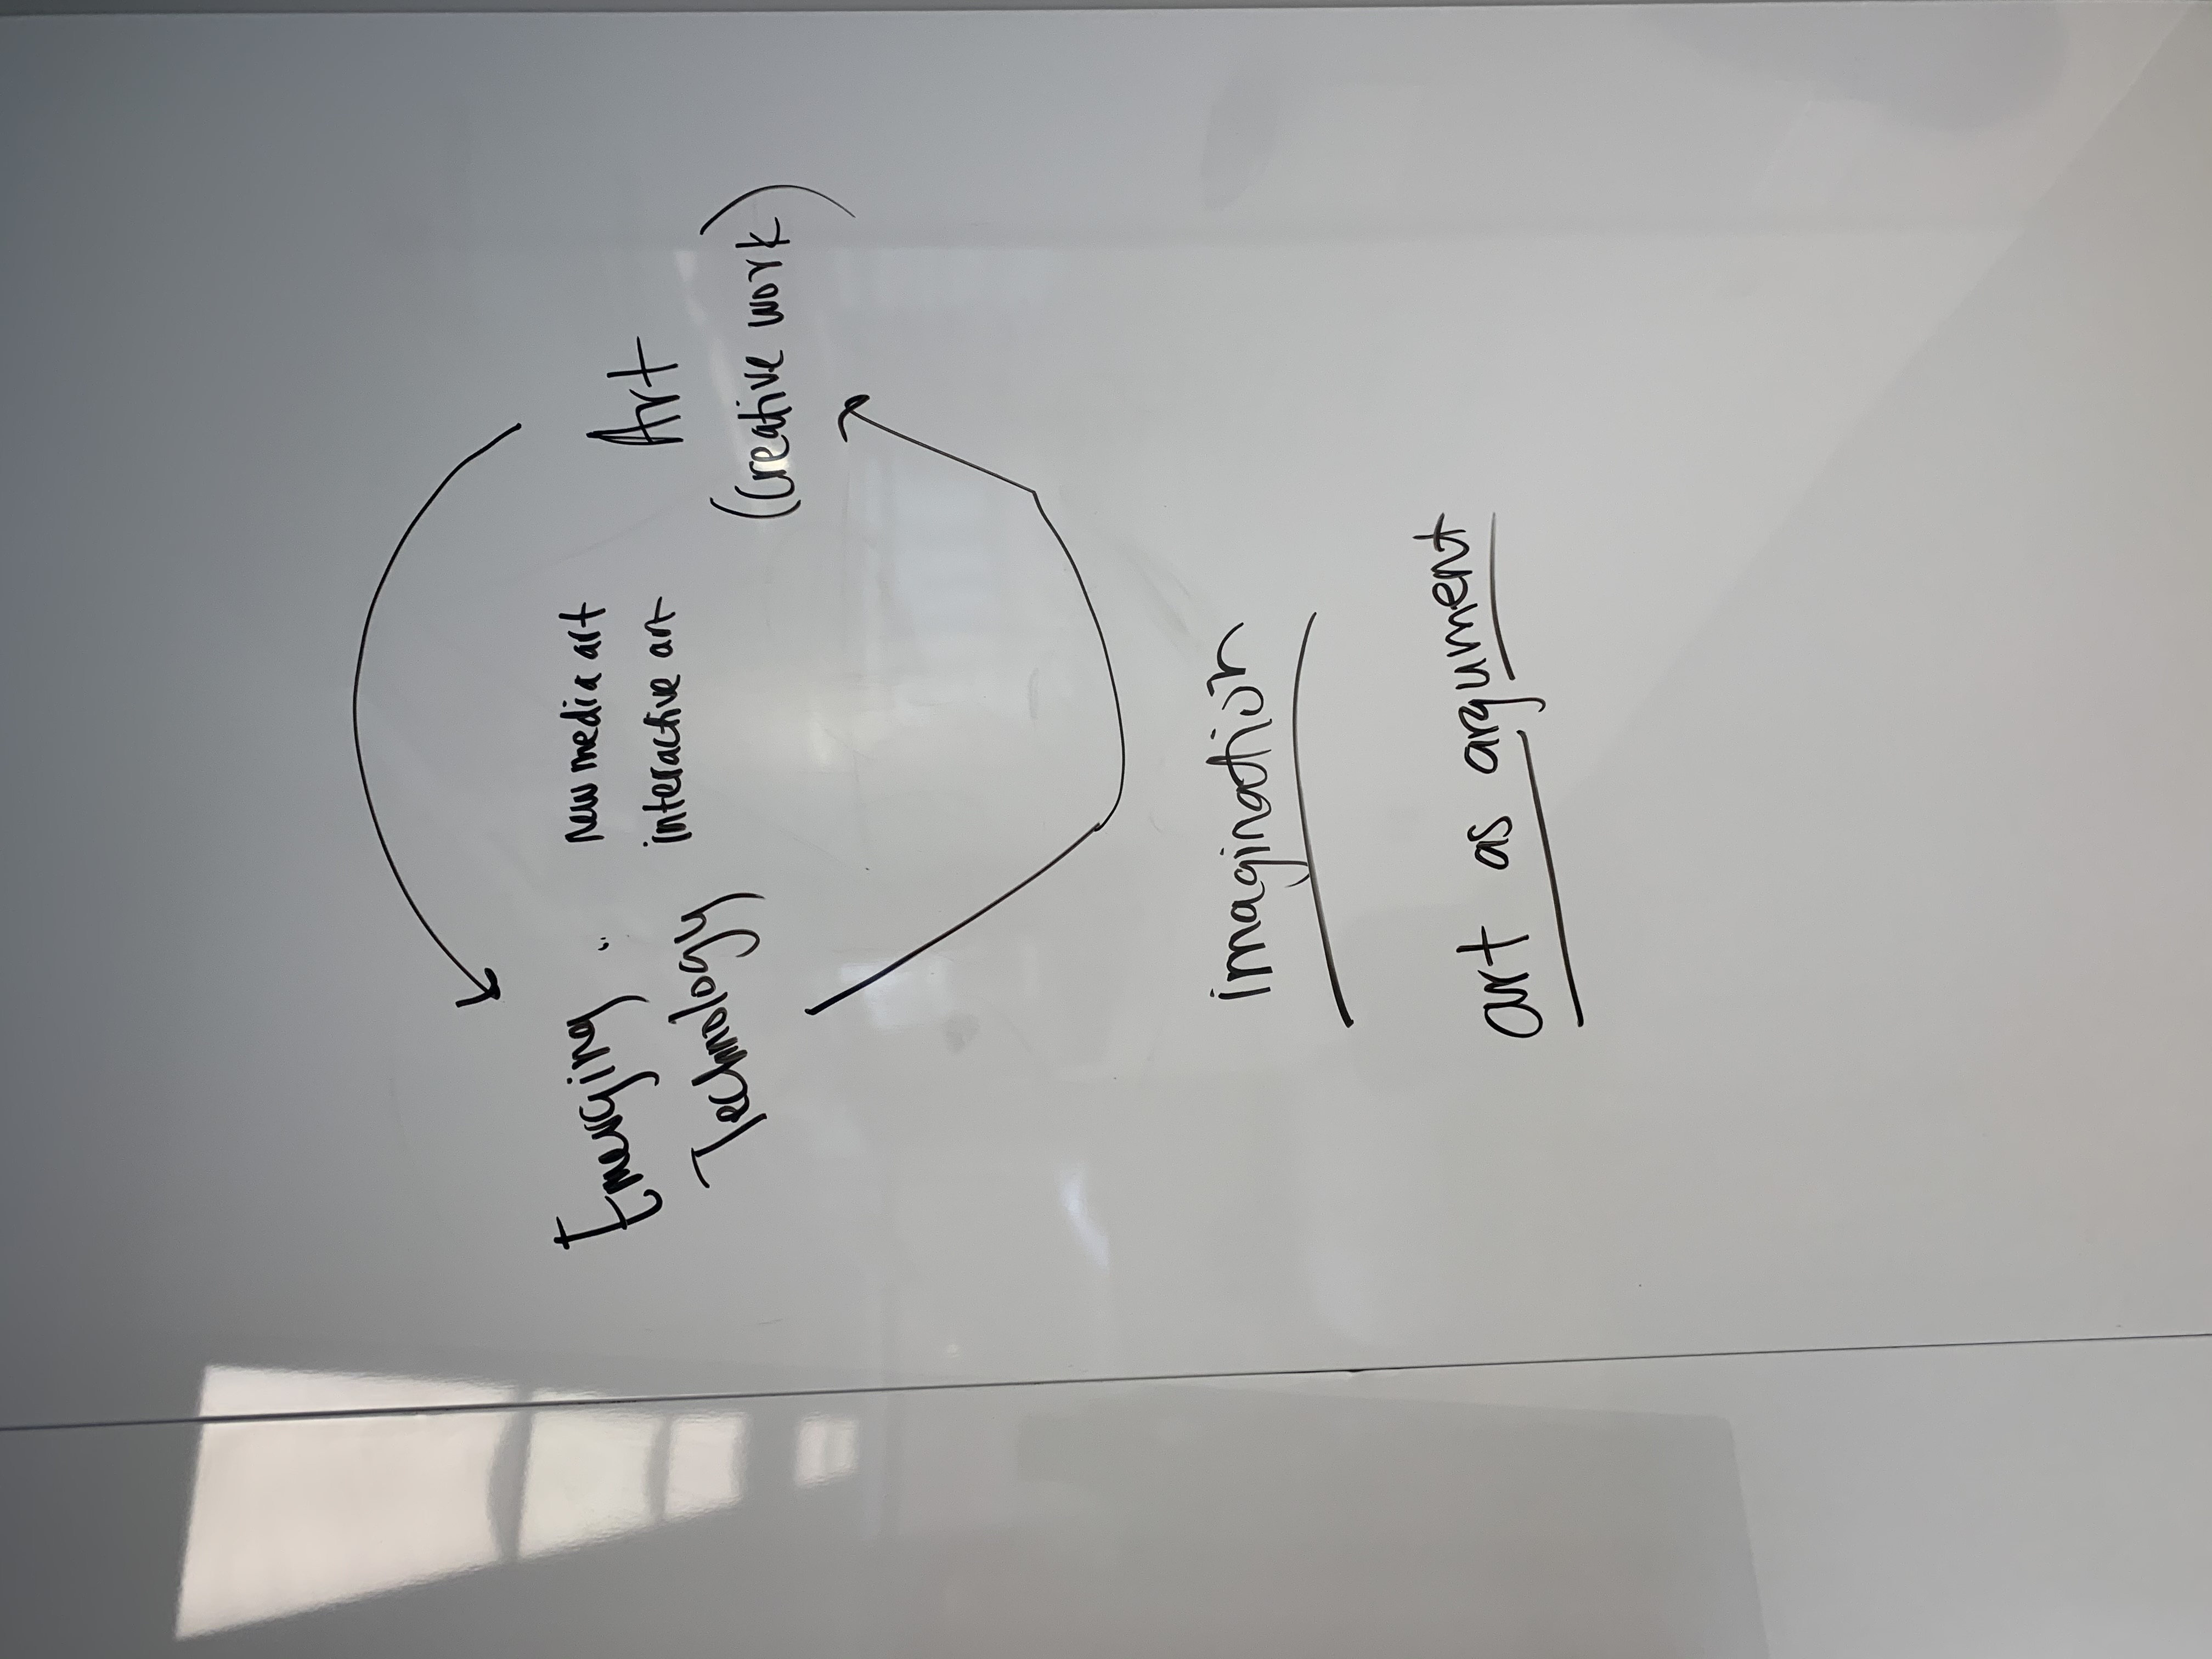 Emerging
Technology
New media art
interactive art
Art
(Creative work)
imagination
art as argument